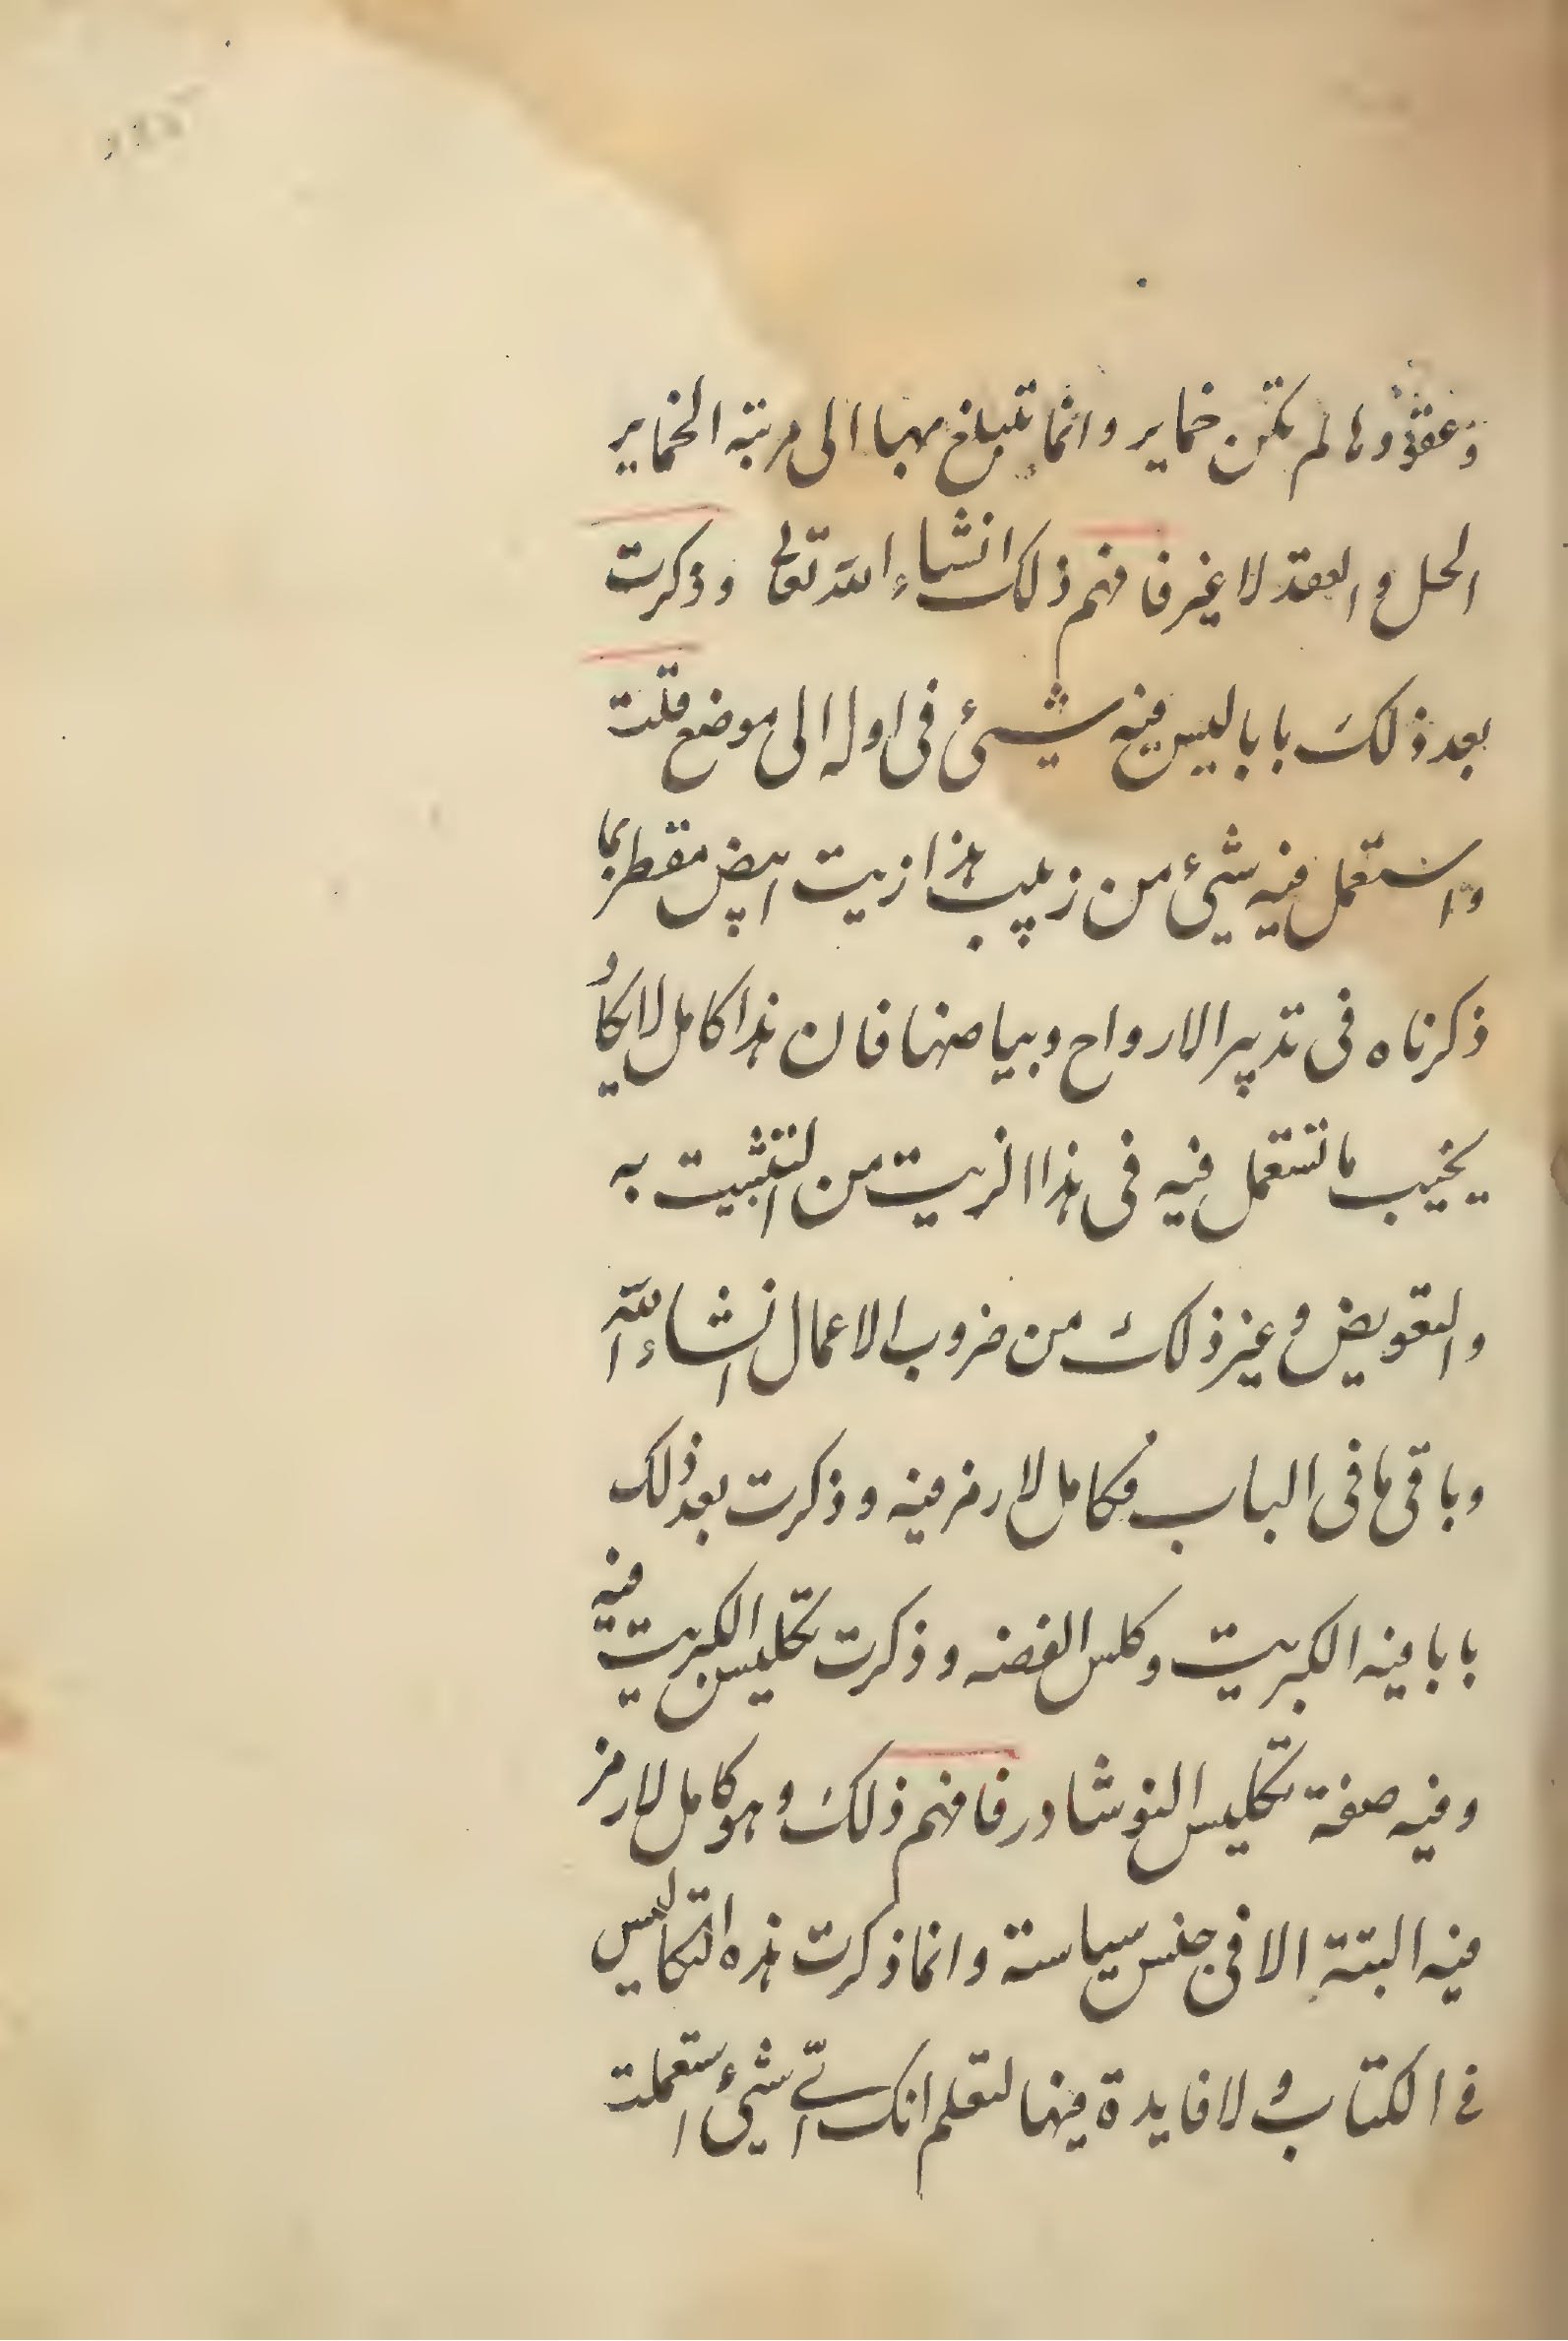 وعقودها لم تكن خماير وانما تبلغ بهما الى مرتبه الخماير
الحل والعقد لا غير فافهم ذلك انشاء الله تعالى وذكرت
بعد ذلك بابا ليس فيه شيئ في اوله الى موضع قلت
واستعمل فيه شيئ من زيبب هذا زيت ابيض مقطر بما
ذكرناه في تدبير الارواح وبياضها فان هذا كامل لا يكاد
يخيب ما تستعمل فيه في هذا الزيت من التثبيت به
والتعويض وغير ذلك من ضروب الاعمال انشاء الله
وباقي ما في الباب فكامل لا رمز فيه وذكرت بعد ذلك
بابا فيه الكبريت وكلس الفضه وذكرت تكليس الكبريت فيه
وفيه صفة تكليس النوشادر فافهم ذلك وهو كامل لا رمز
فيه البتة الا في جنس سياسة وانما ذكرت هذه التكاليس
في الكتاب ولا فايدة فيها لتعلم انك اي شيئ استعملت